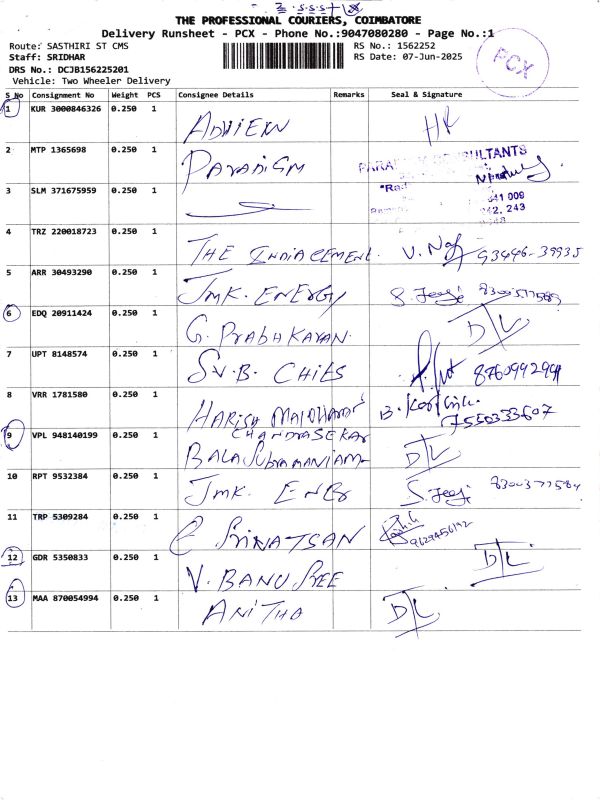 THE PROFESSIONAL COURIERS, COIMBATORE
Delivery Runsheet - PCX - Phone No.:9047080280 - Page No.:1
Route: SASTHIRI ST CMS RS No.: 1562252
Staff: SRIDHAR RS Date: 07-Jun-2025
PCX
DRS No.: DCJB156225201
Vehicle: Two Wheeler Delivery
S No Consignment No Weight PCS Consignee Details Remarks Seal & Signature
1 KUR 3000846326 0.250 1
2 MTP 1365698 0.250 1 PARADIGM CONSULTANTS
3 SLM 371675959 0.250 1
4 TRZ 220018723 0.250 1 THE INDIA CEMENT. 93446-39935
5 ARR 30493290 0.250 1 JMK. ENERGY
6 EDQ 20911424 0.250 1 G. PRABHAKARAN. D/L
7 UPT 8148574 0.250 1 S.V.B. CHITS
8 VRR 1781580 0.250 1 HARISH 7550333607
9 VPL 948140199 0.250 1 CHANDRASEKAR
BALASUBRAMANIAM D/L
10 RPT 9532384 0.250 1 JMK. ENER
11 TRP 5309284 0.250 1
12 GDR 5350833 0.250 1 V. BANU SREE D/L
13 MAA 870054994 0.250 1 ANITHA D/L